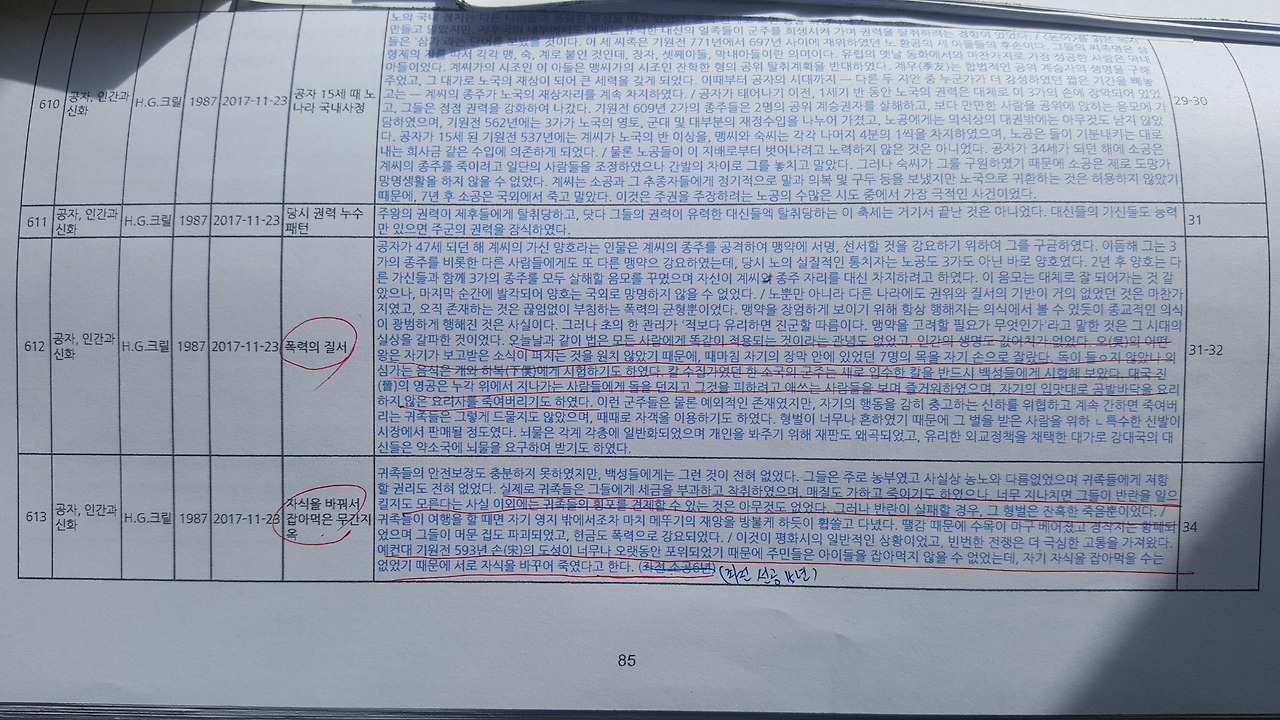 610
공자, 인간과
신화
H.G.크릴
1987
2017-11-23
공자 15세 때 노
나라 국내사정
주었고, 그 대가로 노국의 재상이 되어 큰 세력을 갖게 되었다. 어때부터 공자의 시대까지 — 다른 두 지안 중 누군가가 더 강성하였던 짧은 시기를 빼놓
고는 — 계씨의 종주가 노국의 재상자리를 계속 차지하였다. / 공자가 태어나기 이전, 1세기 반 동안 노국의 권력은 대체로 이 3가의 손에 장악되어 있었
고, 그들은 점점 권력을 강화하여 나갔다. 기원전 609년 2가의 종주들은 2명의 공위 계승권자를 살해하고, 보다 만만한 사람을 공위에 앉히는 음모에 가
담하였으며, 기원전 562년에는 3가가 노국의 영토, 군대 및 대부분의 재정수입을 나누어 가졌고, 노공에게는 의식상의 대권밖에는 아무것도 남지 않았
다. 공자가 15세 된 기원전 537년에는 계씨가 노국의 반 이상을, 맹씨와 숙씨는 각각 나머지 4분의 1씩을 차지하였으며, 노공은 들이 기분내키는 대로
내는 희사금 같은 수입에 의존하게 되었다. / 물론 노공들이 이 지배로부터 벗어나려고 노력하지 않은 것은 아니었다. 공자가 34세가 되던 해에 소공은
계씨의 종주를 죽이려고 일단의 사람들을 조정하였으나 간발의 차이로 그를 놓치고 말았다. 그러나 숙씨가 그를 구원하였기 때문에 소공은 제로 도망가
망명생활을 하지 않을 수 없었다. 계씨는 소공과 그 추종자들에게 정기적으로 말과 의복 및 구두 등을 보냈지만 노국으로 귀환하는 것은 허용하지 않았기
때문에, 7년 후 소공은 국외에서 죽고 말았다. 이것은 주권을 주장하려는 노공의 수많은 시도 중에서 가장 극적인 사건이었다.
29-30
611
공자, 인간과
신화
H.G.크릴
1987
2017-11-23
당시 권력 누수
패턴
주왕의 권력이 제후들에게 탈취당하고, 닷다 그들의 권력이 유력한 대신들엑 탈취당하는 이 축세는 거기서 끝난 것은 아니었다. 대신들의 가신들도 능력
만 있으면 주군의 권력을 잠식하였다.
31
612
공자, 인간과
신화
H.G.크릴
1987
2017-11-23
폭력의 질서
공자가 47세 되던 해 계씨의 가신 양호라는 인물은 계씨의 종주를 공격하여 맹약에 서명, 선서할 것을 강요하기 위하여 그를 구금하였다. 이듬해 그는 3
가의 종주를 비롯한 다른 사람들에게도 또 다른 맹약으 강요하였는데, 당시 노의 실질적인 통치자는 노공도 3가도 아닌 바로 양호였다. 2년 후 양호는 다
른 가신들과 함께 3가의 종주를 모두 살해할 음모를 꾸몄으며 자신이 계씨의 종주 자리를 대신 차지하려고 하였다. 이 음모는 대체로 잘 되어가는 것 같
았으나, 마지막 순간에 발각되어 양호는 국외로 망명하지 않을 수 없었다. / 노뿐만 아니라 다른 나라에도 권위와 질서의 기반이 거의 없었던 것은 마찬가
지였고, 오직 존재하는 것은 끊임없이 부침하는 폭력의 균형뿐이었다. 맹약을 장엄하게 보이기 위해 항상 행해지는 의식에서 볼 수 있듯이 종교적인 의식
이 광범하게 행해진 것은 사실이다. 그러나 초의 한 관리가 ‘적보다 유리하면 진군할 따름이다. 맹약을 고려할 필요가 무엇인가’라고 말한 것은 그 시대의
실상을 갈파한 것이었다. 오늘날과 같이 법은 모든 사람에게 똑같이 적용되는 것이라는 관념도 없었고, 인간의 생명도 값어치가 없었다. 오(吳)의 어떤
왕은 자기가 보고받은 소식이 퍼지는 것을 원치 않았기 때문에, 때마침 자기의 장막 안에 있었던 7명의 목을 자기 손으로 잘랐다. 독이 들ㅇ지 않았나 의
심가는 음식은 개와 하복(下僕)에게 시험하기도 하였다. 칼 수집가였던 한 소국의 군주는 새로 입수한 칼을 반드시 백성들에게 시험해 보았다. 대국 진
(晉)의 영공은 누각 위에서 지나가는 사람들에게 돌을 던지고 그것을 피하려고 애쓰는 사람들을 보며 즐거워하였으며, 자기의 입맛대로 곰발바닥을 요리
하지 않은 요리사를 죽여버리기도 하였다. 이런 군주들은 물론 예외적인 존재였지만, 자기의 행동을 감히 충고하는 신하를 위협하고 계속 간하면 죽여버
리는 귀족들은 그렇게 드물지도 않았으며, 때때로 자객을 이용하기도 하였다. 형벌이 너무나 흔하였기 때문에 그 벌을 받은 사람을 위하ㄴ 특수한 신발이
시장에서 판매될 정도였다. 뇌물은 각계 각층에 일반화되었으며 개인을 봐주기 위해 재판도 왜곡되었고, 유리한 외교정책을 채택한 대가로 강대국의 대
신들은 약소국에 뇌물을 요구하여 받기도 하였다.
31-32
613
공자, 인간과
신화
H.G.크릴
1987
2017-11-23
자식을 바꿔서
잡아먹은 무간지
옥
귀족들의 안전보장도 충분하지 못하였지만, 백성들에게는 그런 것이 전혀 없었다. 그들은 주로 농부였고 사실상 농노와 다름없었으며 귀족들에게 저항
할 권리도 전혀 없었다. 실제로 귀족들은 그들에게 세금을 부과하고 착취하였으며, 매질도 가하고 죽이기도 하였으나, 너무 지나치면 그들이 반란을 일으
킬지도 모른다는 사실 이외에는 귀족들의 횡포를 견제할 수 있는 것은 아무것도 없었다. 그러나 반란이 실패할 경우, 그 형벌은 잔혹한 죽음뿐이었다. /
귀족들이 여행을 할 때면 자기 영지 밖에서조차 마치 메뚜기의 재앙을 방불게 하듯이 휩쓸고 다녔다. 땔감 때문에 수목이 마구 베어졌고 경작지는 황폐화
었으며 그들이 머문 집도 파괴되었고, 현금도 폭력으로 강요되었다. / 이것이 평화시의 일반적인 상황이었고, 빈번한 전쟁은 더 극심한 고통을 가져왔다.
예컨대 기원전 593년 손(宋)의 도성이 너무나 오랫동안 포위되었기 때문에 주민들은 아이들을 잡아먹지 않을 수 없었는데, 자기 자식을 잡아먹을 수는
없었기 때문에 서로 자식을 바꾸어 죽였다고 한다. (좌전 소공6년) (좌전 선공 15년)
34
85